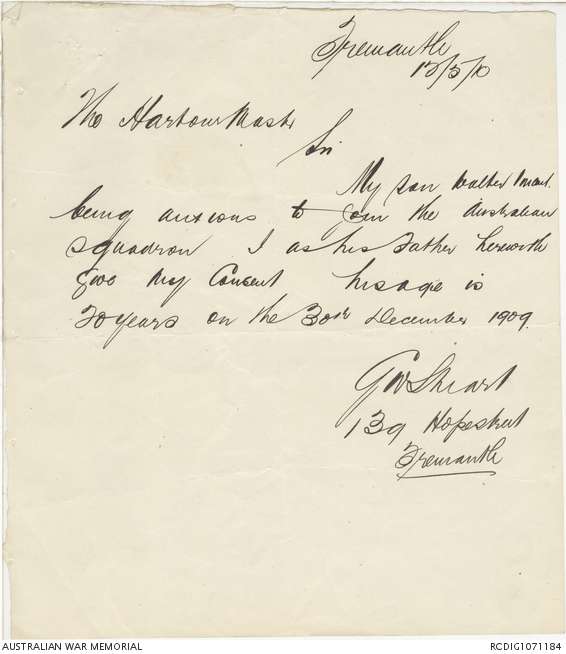 Fremantle
12/5/10
The Harbour Master
Sir
My son Walter
being anxious to join the Australian
squadron I as his Father herewith
give my Consent his age is
20 years on the 30th December 1909
139 Hope street
Fremantle
AUSTRALIAN WAR MEMORIAL
RCDIG1071184